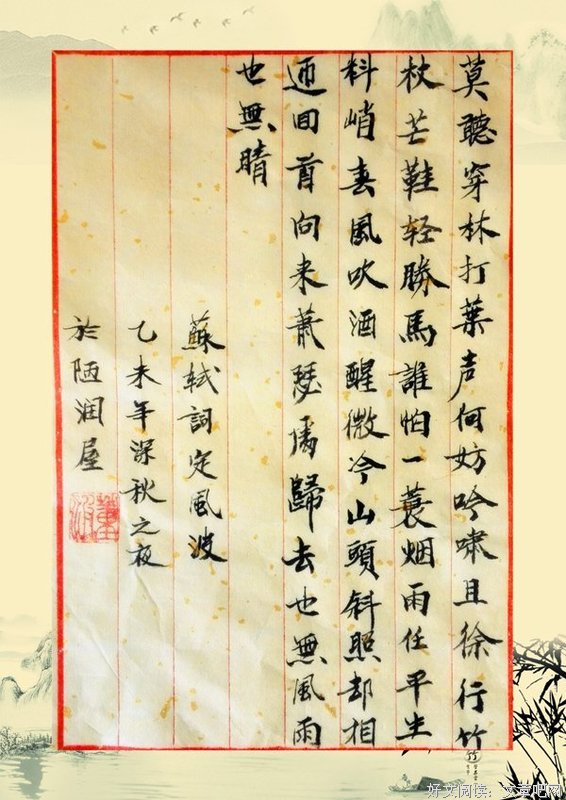 莫聽穿林打葉声何妨吟嘯且徐行竹
杖芒鞋轻勝馬誰怕一蓑烟雨任平生
料峭春風吹酒醒微冷山頭斜照却相
迎回首向来蕭瑟處歸去也無風雨
也無晴
蘇軾詞定風波
乙未年深秋之夜
於陋润屋
好文阅读：文章吧网